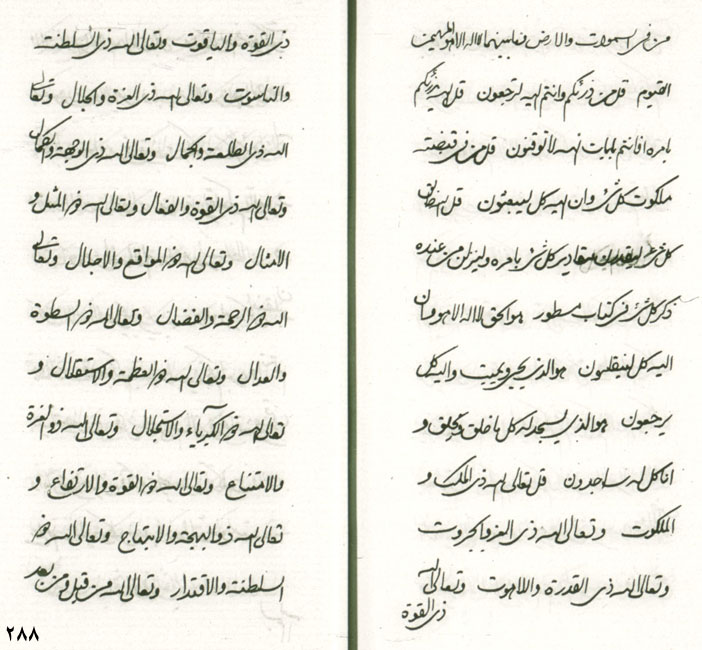 من فی السموات والارض وما بینهما لا اله الا هو المهیمن
القیوم قل من ذرئکم وانتم الیه لترجعون قل الله یرزقکم
بامره افانتم بایات الله لا توقنون قل من فی قبضته
ملکوت کل شئ وان الیه کل لیبعثون قل الله خالق
کل شئ مقادیر کل شئ بامره ولینزلن من عنده
ذکر کل شئ فی کتاب مسطور هو الحق لا اله الا هو وان
الیه کل لینقلبون هو الذی یحیی ویمیت والیه کل
یرجعون هو الذی یسجد له کل ما خلق ویخلق و
انا کل له ساجدون قل تعالی الله ذی الملک و
الملکوت وتعالی الله ذی العز والجبروت
وتعالی الله ذی القدرة واللاهوت وتعالی الله
ذی القوة
ذی القوة والیاقوت وتعالی الله ذی السلطنة
والناسوت وتعالی الله ذی العزة والجلال وتعالی
الله ذی الطلعة والجمال وتعالی الله ذی الوجهة والکمال
وتعالی الله ذی القوة والفعال وتعالی الله ذو المثل و
الامثال وتعالی الله ذو المواقع والاجلال وتعالی
الله ذو الرحمة والفضال وتعالی الله ذو السطوة
والعدال وتعالی الله ذو العظمة والاستقلال و
تعالی الله ذو الکبریاء والاستجلال وتعالی الله ذو العزة
والامتناع وتعالی الله ذو القوة والارتفاع و
تعالی الله ذو البهجة والابتهاج وتعالی الله ذو
السلطنة والاقتدار وتعالی الله من قبل ومن بعد
٢٨٨